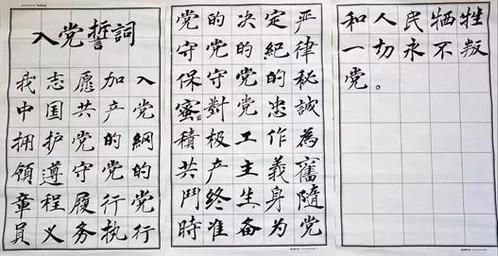 入党誓詞
我志愿加入
中国共产党
拥护党的綱
領遵守党的
章程履行党
員义务执行
党的决定严
守党的紀律
保守党的秘
蜜對党忠誠
積极工作為
共产主義奮
鬥終生身隨
時准备为党
和人民牺牲
一切永不叛
党。